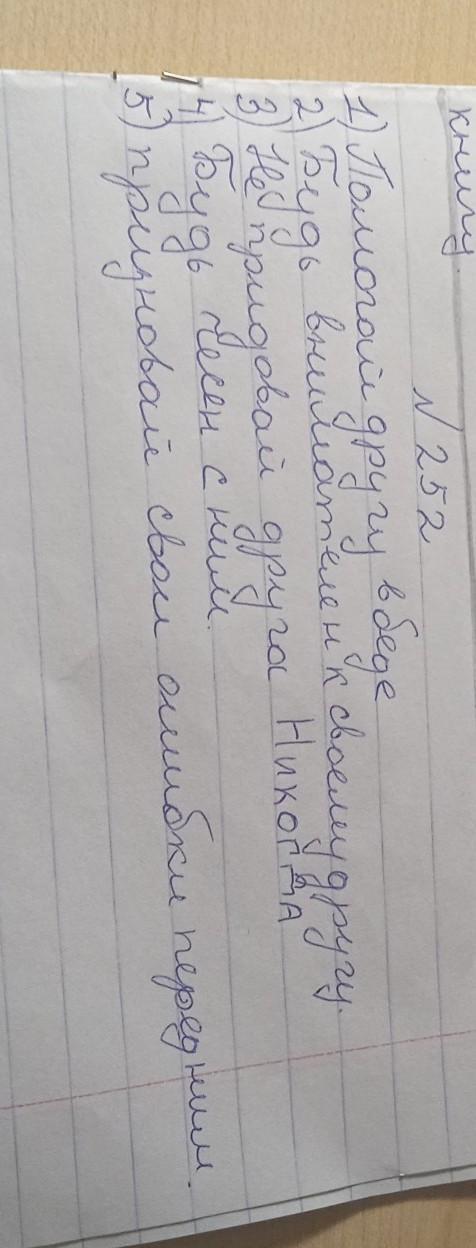 книгу.
№ 252
1) Помогай другу в беде
2) Будь внимателен к своему другу.
3) Не придовай друга НИКОГДА
4) Будь чесен с ним.
5) призновай свои ошибки перед ним.